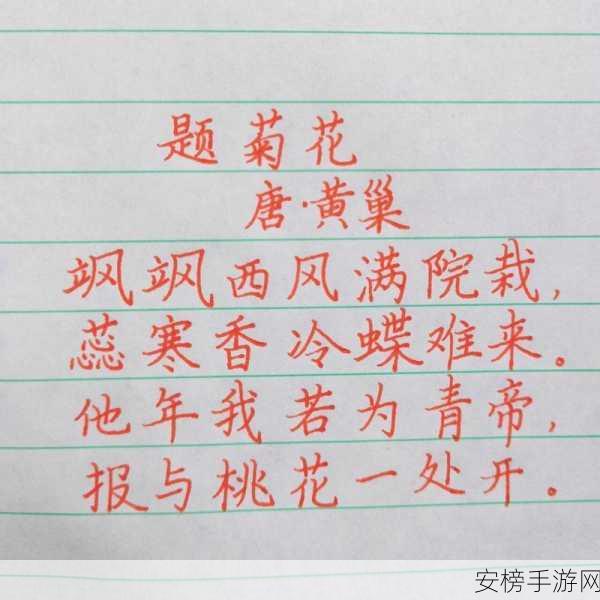 题菊花
唐·黄巢
飒飒西风满院栽,
蕊寒香冷蝶难来。
他年我若为青帝,
报与桃花一处开。
安榜手游网